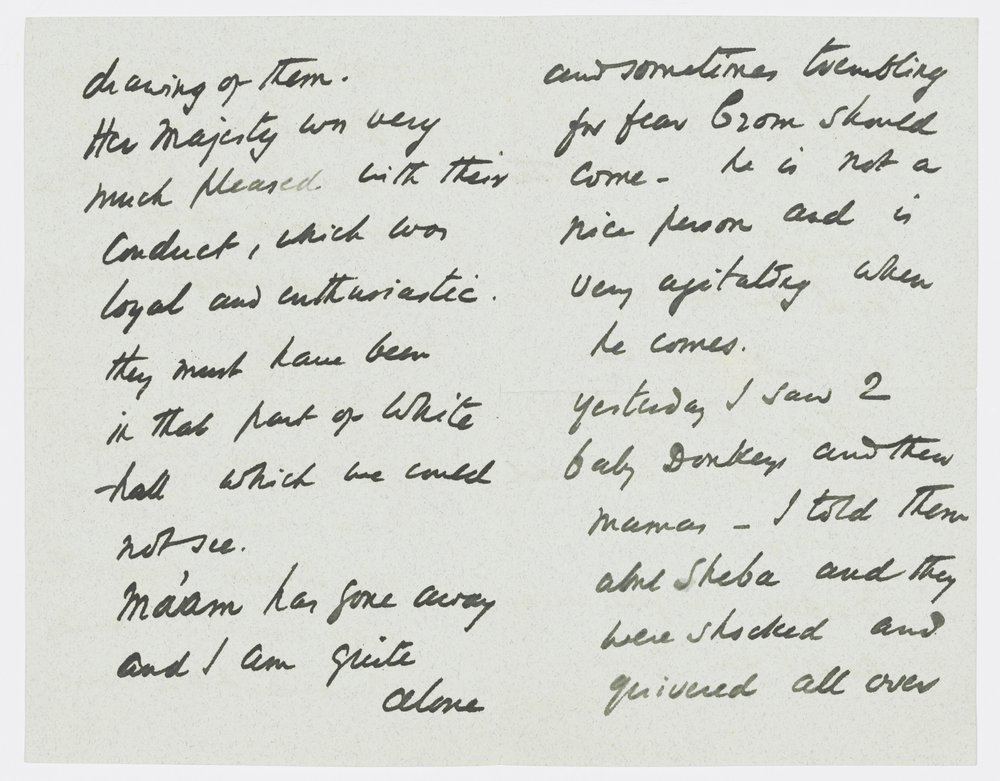 drawing of them.
Her Majesty was very
much pleased with their
Conduct, which was
loyal and enthusiastic.
they must have been
in that part of White
-hall which we could
not see.
Ma'am has gone away
and I am quite
alone
and sometimes trembling
for fear Crom should
come - he is not a
nice person and is
very agitating when
he comes.
yesterday I saw 2
baby Donkeys and their
mamas - I told them
about Sheba and they
were shocked and
quivered all over